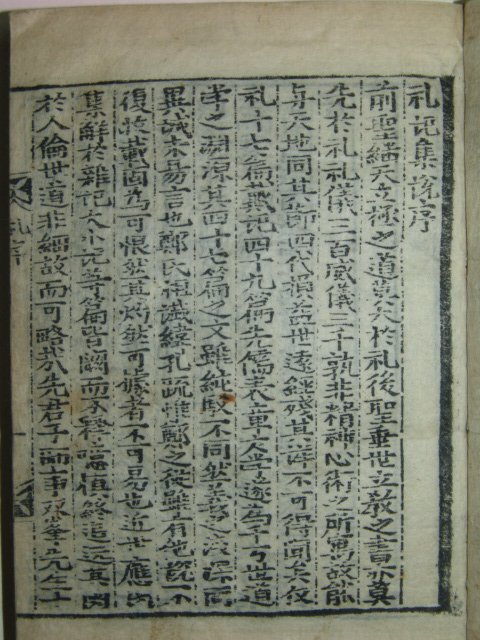 礼記集說序
前聖繼天立極之道莫大於礼後聖垂世立教之書亦莫
先於礼礼儀三百威儀三千孰非精神心術之所寓故能
与天地同其節四代損益世遠經殘其詳不可得聞矣仪
礼十七篇戴記四十九篇先儒表章学遂為千万世道
学之淵源其四十七篇之文雖純駁不同然義之浅深同
異誠未易言也鄭氏祖讖緯孔疏惟鄭之從雖有他說不
復收載固為可恨然其灼然可據者不可易也近世應氏
集解於雜記大小記等篇皆闕而不釋噫慎終追遠其関
於人倫世道非細故而可略哉先君子師事双峯先生十
礼序